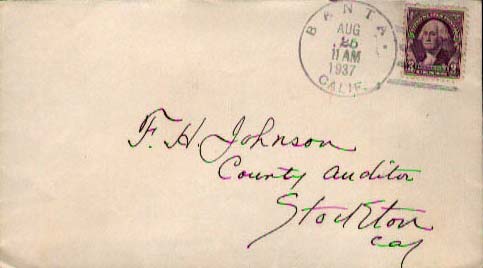 BANTA
AUG
25
11 AM
1937
CALIF.
3 3
F. H. Johnson
County Auditor
Stockton
Cal